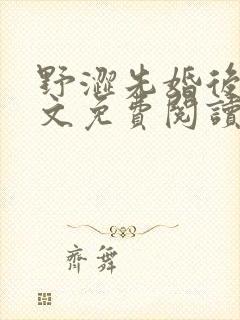 野澀先婚後
文免費閱讀
齊舞